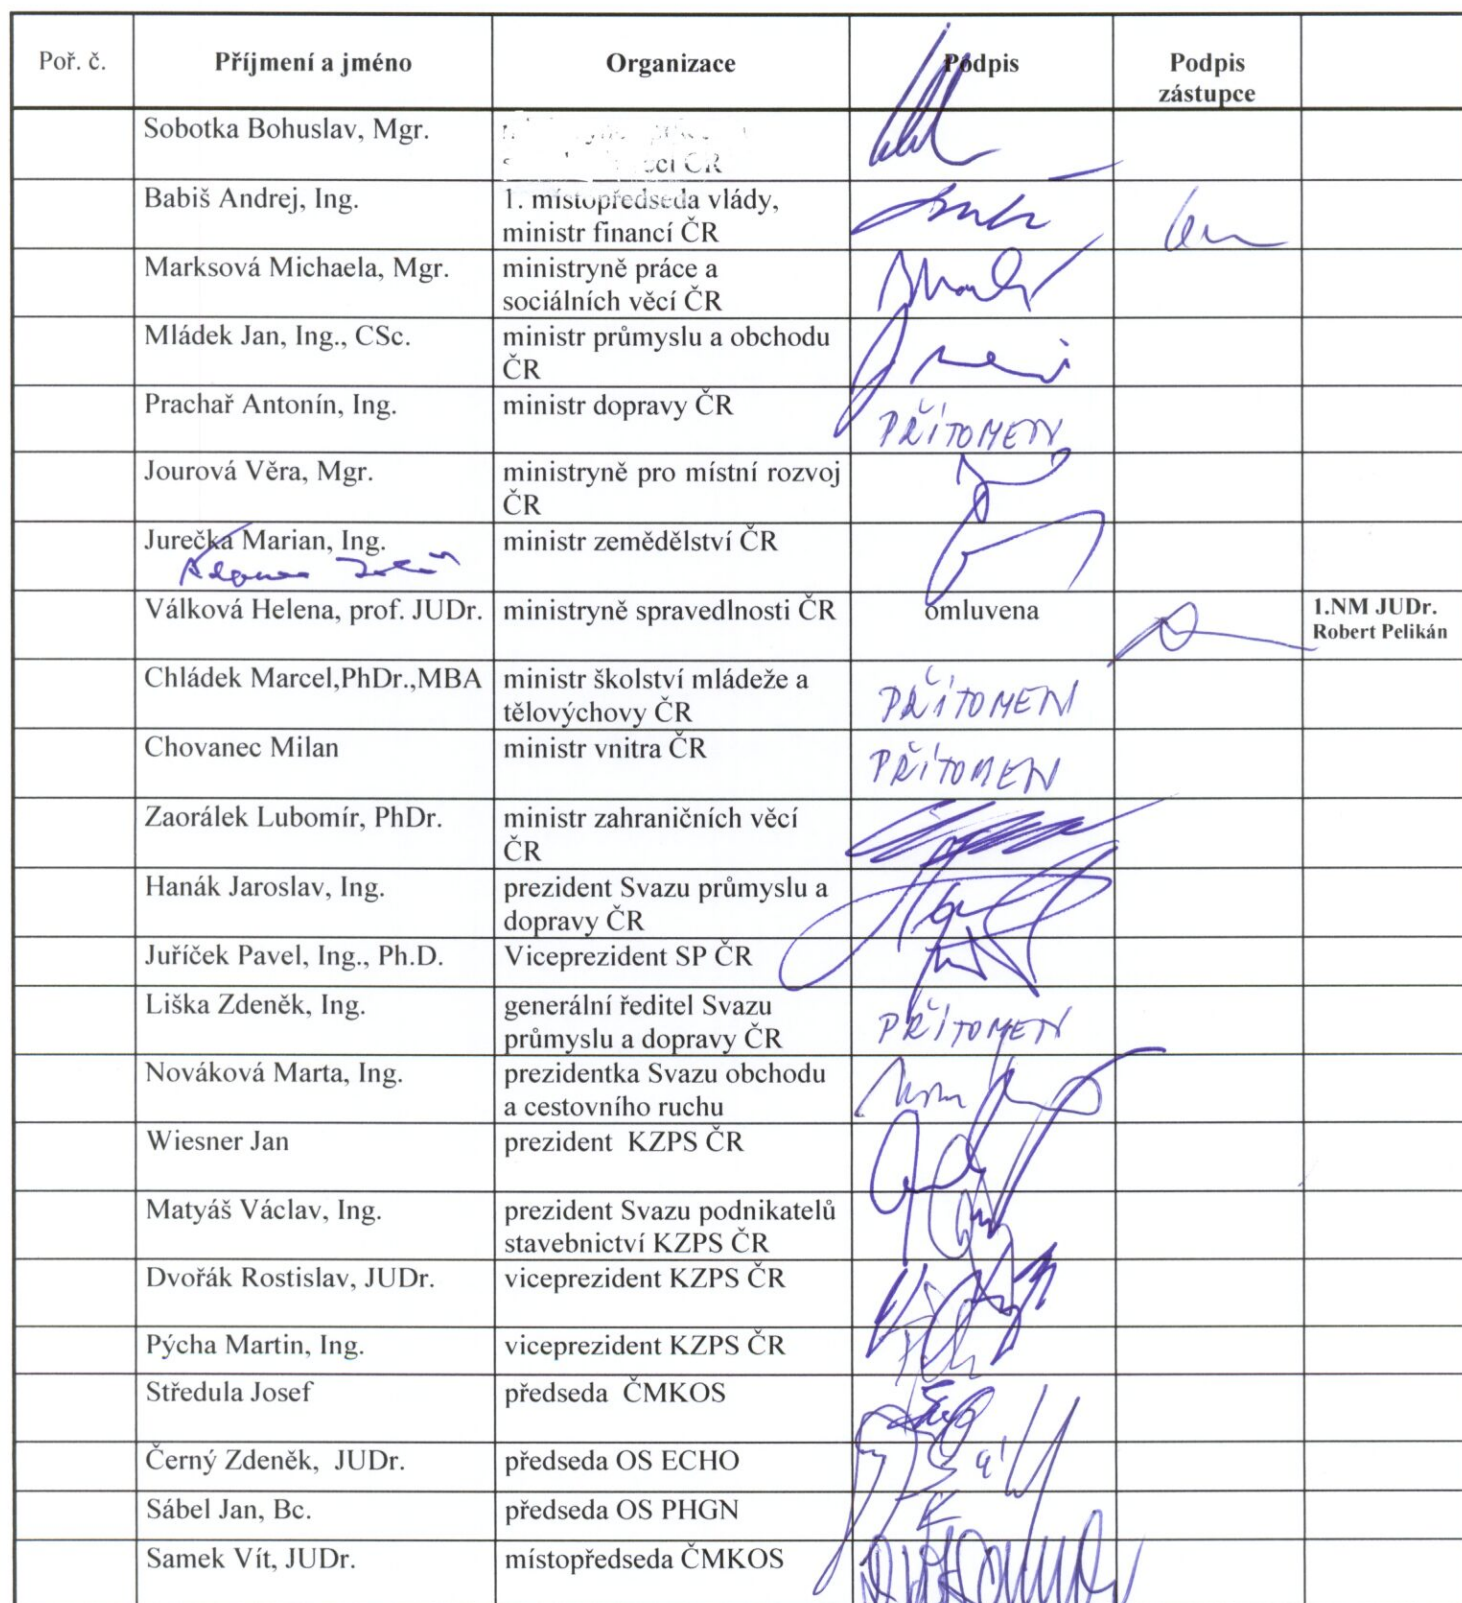 Poř. č. Příjmení a jméno Organizace Podpis Podpis
zástupce
Sobotka Bohuslav, Mgr.
ČR
Babiš Andrej, Ing. 1. místopředseda vlády,
ministr financí ČR
Marksová Michaela, Mgr. ministryně práce a
sociálních věcí ČR
Mládek Jan, Ing., CSc. ministr průmyslu a obchodu
ČR
Prachař Antonín, Ing. ministr dopravy ČR PŘÍTOMEN
Jourová Věra, Mgr. ministryně pro místní rozvoj
ČR
Jurečka Marian, Ing. ministr zemědělství ČR
Válková Helena, prof. JUDr. ministryně spravedlnosti ČR omluvena 1.NM JUDr.
Robert Pelikán
Chládek Marcel,PhDr.,MBA ministr školství mládeže a
tělovýchovy ČR PŘÍTOMEN
Chovanec Milan ministr vnitra ČR PŘÍTOMEN
Zaorálek Lubomír, PhDr. ministr zahraničních věcí
ČR
Hanák Jaroslav, Ing. prezident Svazu průmyslu a
dopravy ČR
Juříček Pavel, Ing., Ph.D. Viceprezident SP ČR
Liška Zdeněk, Ing. generální ředitel Svazu
průmyslu a dopravy ČR PŘÍTOMEN
Nováková Marta, Ing. prezidentka Svazu obchodu
a cestovního ruchu
Wiesner Jan prezident KZPS ČR
Matyáš Václav, Ing. prezident Svazu podnikatelů
stavebnictví KZPS ČR
Dvořák Rostislav, JUDr. viceprezident KZPS ČR
Pýcha Martin, Ing. viceprezident KZPS ČR
Středula Josef předseda ČMKOS
Černý Zdeněk, JUDr. předseda OS ECHO
Sábel Jan, Bc. předseda OS PHGN
Samek Vít, JUDr. místopředseda ČMKOS